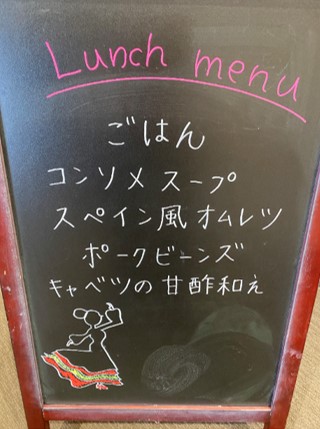 Lunch menu
ごはん
コンソメスープ
スペイン風オムレツ
ポークビーンズ
キャベツの甘酢和え